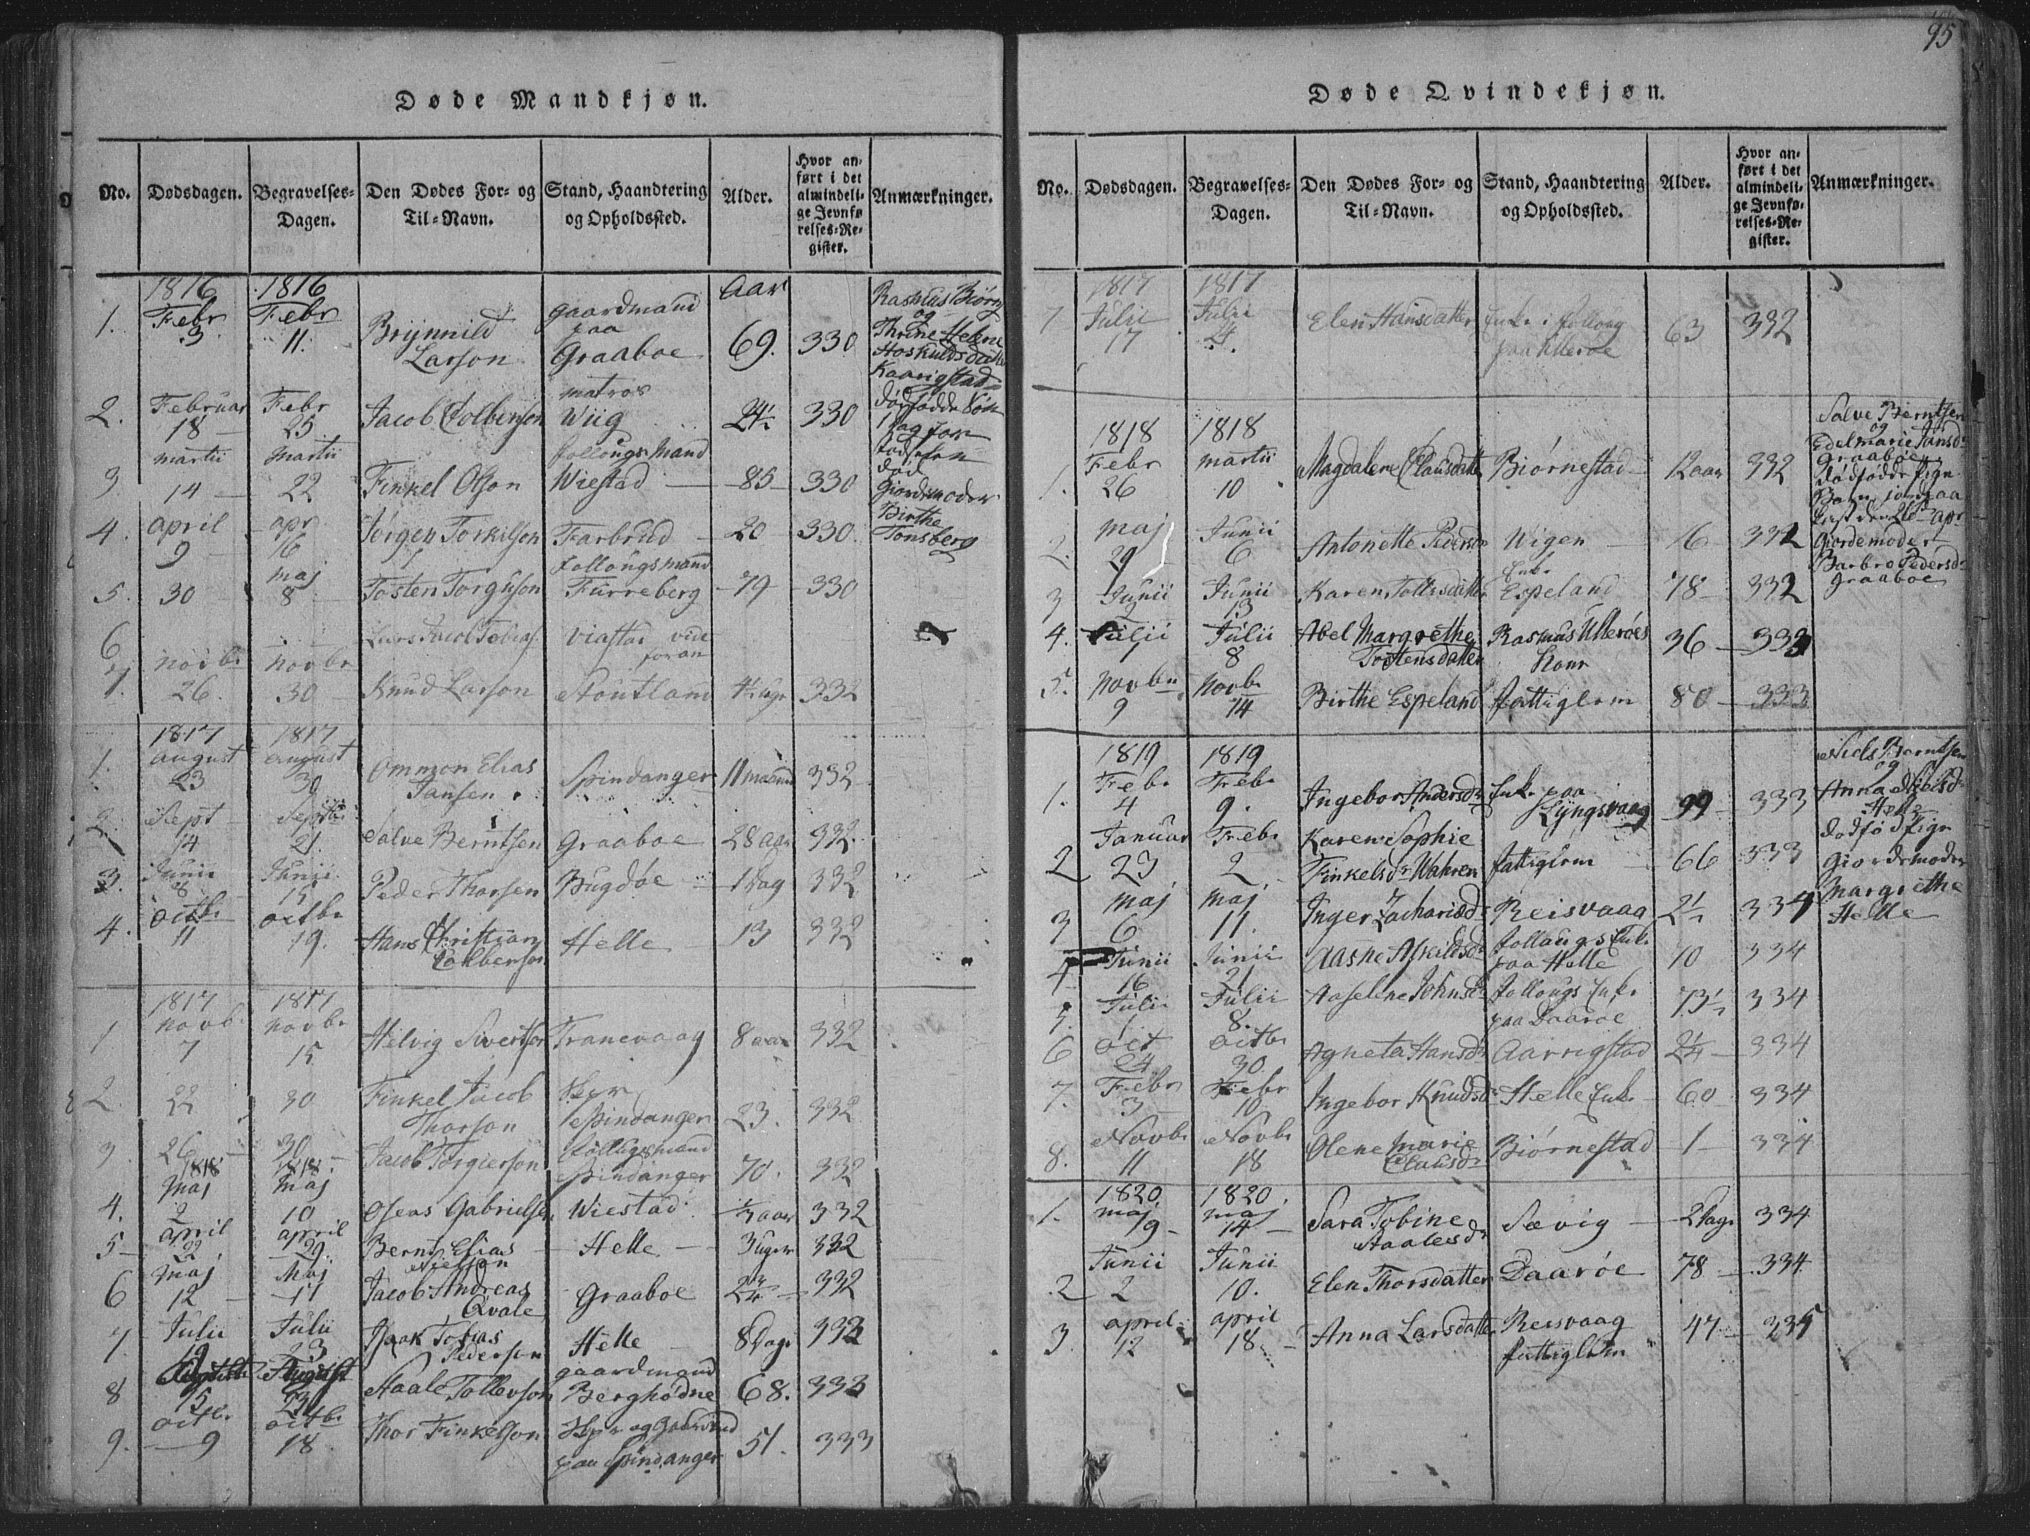 95
Døde Mandkjøn.
No.
Dødsdagen.
Begravelses-
Dagen.
Den Dødes For- og
Til-Navn.
Stand, Haandtering
og Opholdssted.
Alder.
Hvor an-
ført i det
almindeli-
ge Jevnfø-
relses-Re-
gister.
Anmærkninger.
1816 1816 Aar
1. Febr 3 Febr 11. Brynnild Larson gaardmand paa Graaboe 69. 330
Rasmus Biørn
og
Thrine Helene
Hoskuldsdatter
Kaarigstad
dødfødde Søn
1 dag for
død
Giordemoder
Birthe
Tonsberg
2. Februar 18 Febr 25 Jacob Colbenson matros Wiig 24½ 330
3 martii 14 Martii 22 Finkel Olson follougs Mand Wiestad 85 330
4. april 9 apr 16 Jørgen Torkilson Farbrud 20 330
5. 30 maj 8 Tosten Torguson follougsmand Furreberg 79 330
6 Lars Jacob Tobias Viastad vide foran
7. novbr 26. novbr 30 Knud Larson Stoutland 332
1817 1817
1. august 23 august 30 Ommon Elias Jansen Spindanger 11 maaned 332
2 Sept 14 Septbr 21 Salve Berntsen Graaboe 28 aar 332
3. Junii 8 Junii 15 Peder Thorsen Bugdøe 1 dag 332
4. octbr 11 octbr 19. Hans Christian Helle 13 332
1817 1817
1 novb. 7 novbr 15 Helvig Sivertson Tranevaag 8 aar 332
2. 22 30 Finkel Jacob Thorson Spindanger 23. 332
3. 26 30 Jacob Torgierson follugsmand Spindanger 70. 332
1818 1818
4. Maj 2 Maj 10 Oseas Gabrielsen Wiestad ⅓ aar 332
5 april 22 april 29 Bernt Elias Nielson Helle 3 uger 332
6 Maj 12 Maj 17 Jacob Andreas Qvale Graaboe 2¾ 332
7 Julii Julii Isaak Tobias Pederson Helle 8 Dage 333
8 15 August 23 Staale Tollevson gaardmand Berghødne 68. 333
9. octb. 9 octbr 18 Thor Finkelson paa Spindanger 51. 333
Døde Qvindekjøn.
No.
Dødsdagen.
Begravelses-
Dagen.
Den Dødes For- og
Til-Navn.
Stand, Haandtering
og Opholdssted.
Alder.
Hvor an-
ført i det
almindeli-
ge Jevnfø-
relses-Re-
gister.
Anmærkninger.
1817 1817
7 Julii 17 Julii Elen Hansdatter Enke i folloug paa Ullerøe 63 332
1818 1818
1. Febr 26 martii 10 Magdalene Clausdatter Biørnestad 12 aar 332
Salve Berntsen
og
Edelmarie Jansdr
Graaboe
dødfødde Pige
Barn
Giordemoder
Barbro Pedersdr
Graaboe
2. maj 29 Junii 6 Antonette Pedersdr Wigen 16 332
3 Junii Junii 13 Karen Tollisdatter Enke Espeland 78 332
4. Julii 1 Julii 8 Abel Margrethe Tostensdatter Rasmus Ullerøes Kone 36 333
5. Novbr 9 Novbr 14 Birthe Espeland fattiglem 80 333
1819 1819
1. Febr 4 Febr 9. Ingebor Andersdr Enke paa Lyngsvaag 99 333
Niels Berntsen
og
Anna Nielsdr
dødfød Pige
Giordemoder
Margrethe
Helle
2 Januar 23 Febr 2 Karen Sophie Finkelsdr Wahren fattiglem 66 333
3 maj 6 maj 11. Inger Zacharisdr Reisvaag 2½ 334
4 Junii 16 Junii 21 Aasne Askildsdr follougs Enke paa Helle 70 334
5. Julii Julii 8. Aaselene Johnsdr follougs Enke paa Daarøe 73½ 334
6 Oct 24 octbr 30. Agneta Hansdr Aarrigstad 2¼ 334
7. Febr 3 Febr 10 Ingebor Knudsdr Helle Enke 60 334
8. Novbr 11 Novbr 18 Olene Marie Clausdr Biørnestad 1 334
1820 1820.
1. maj 9 maj 14 Sara Tobine Staalesdr Sævig 2 Dage 334
2 Junii 2 Junii 10. Elen Thorsdatter Daarøe 78 334
3. april 12 april 18 Anna Larsdatter Reisvaag fattiglem 47 335